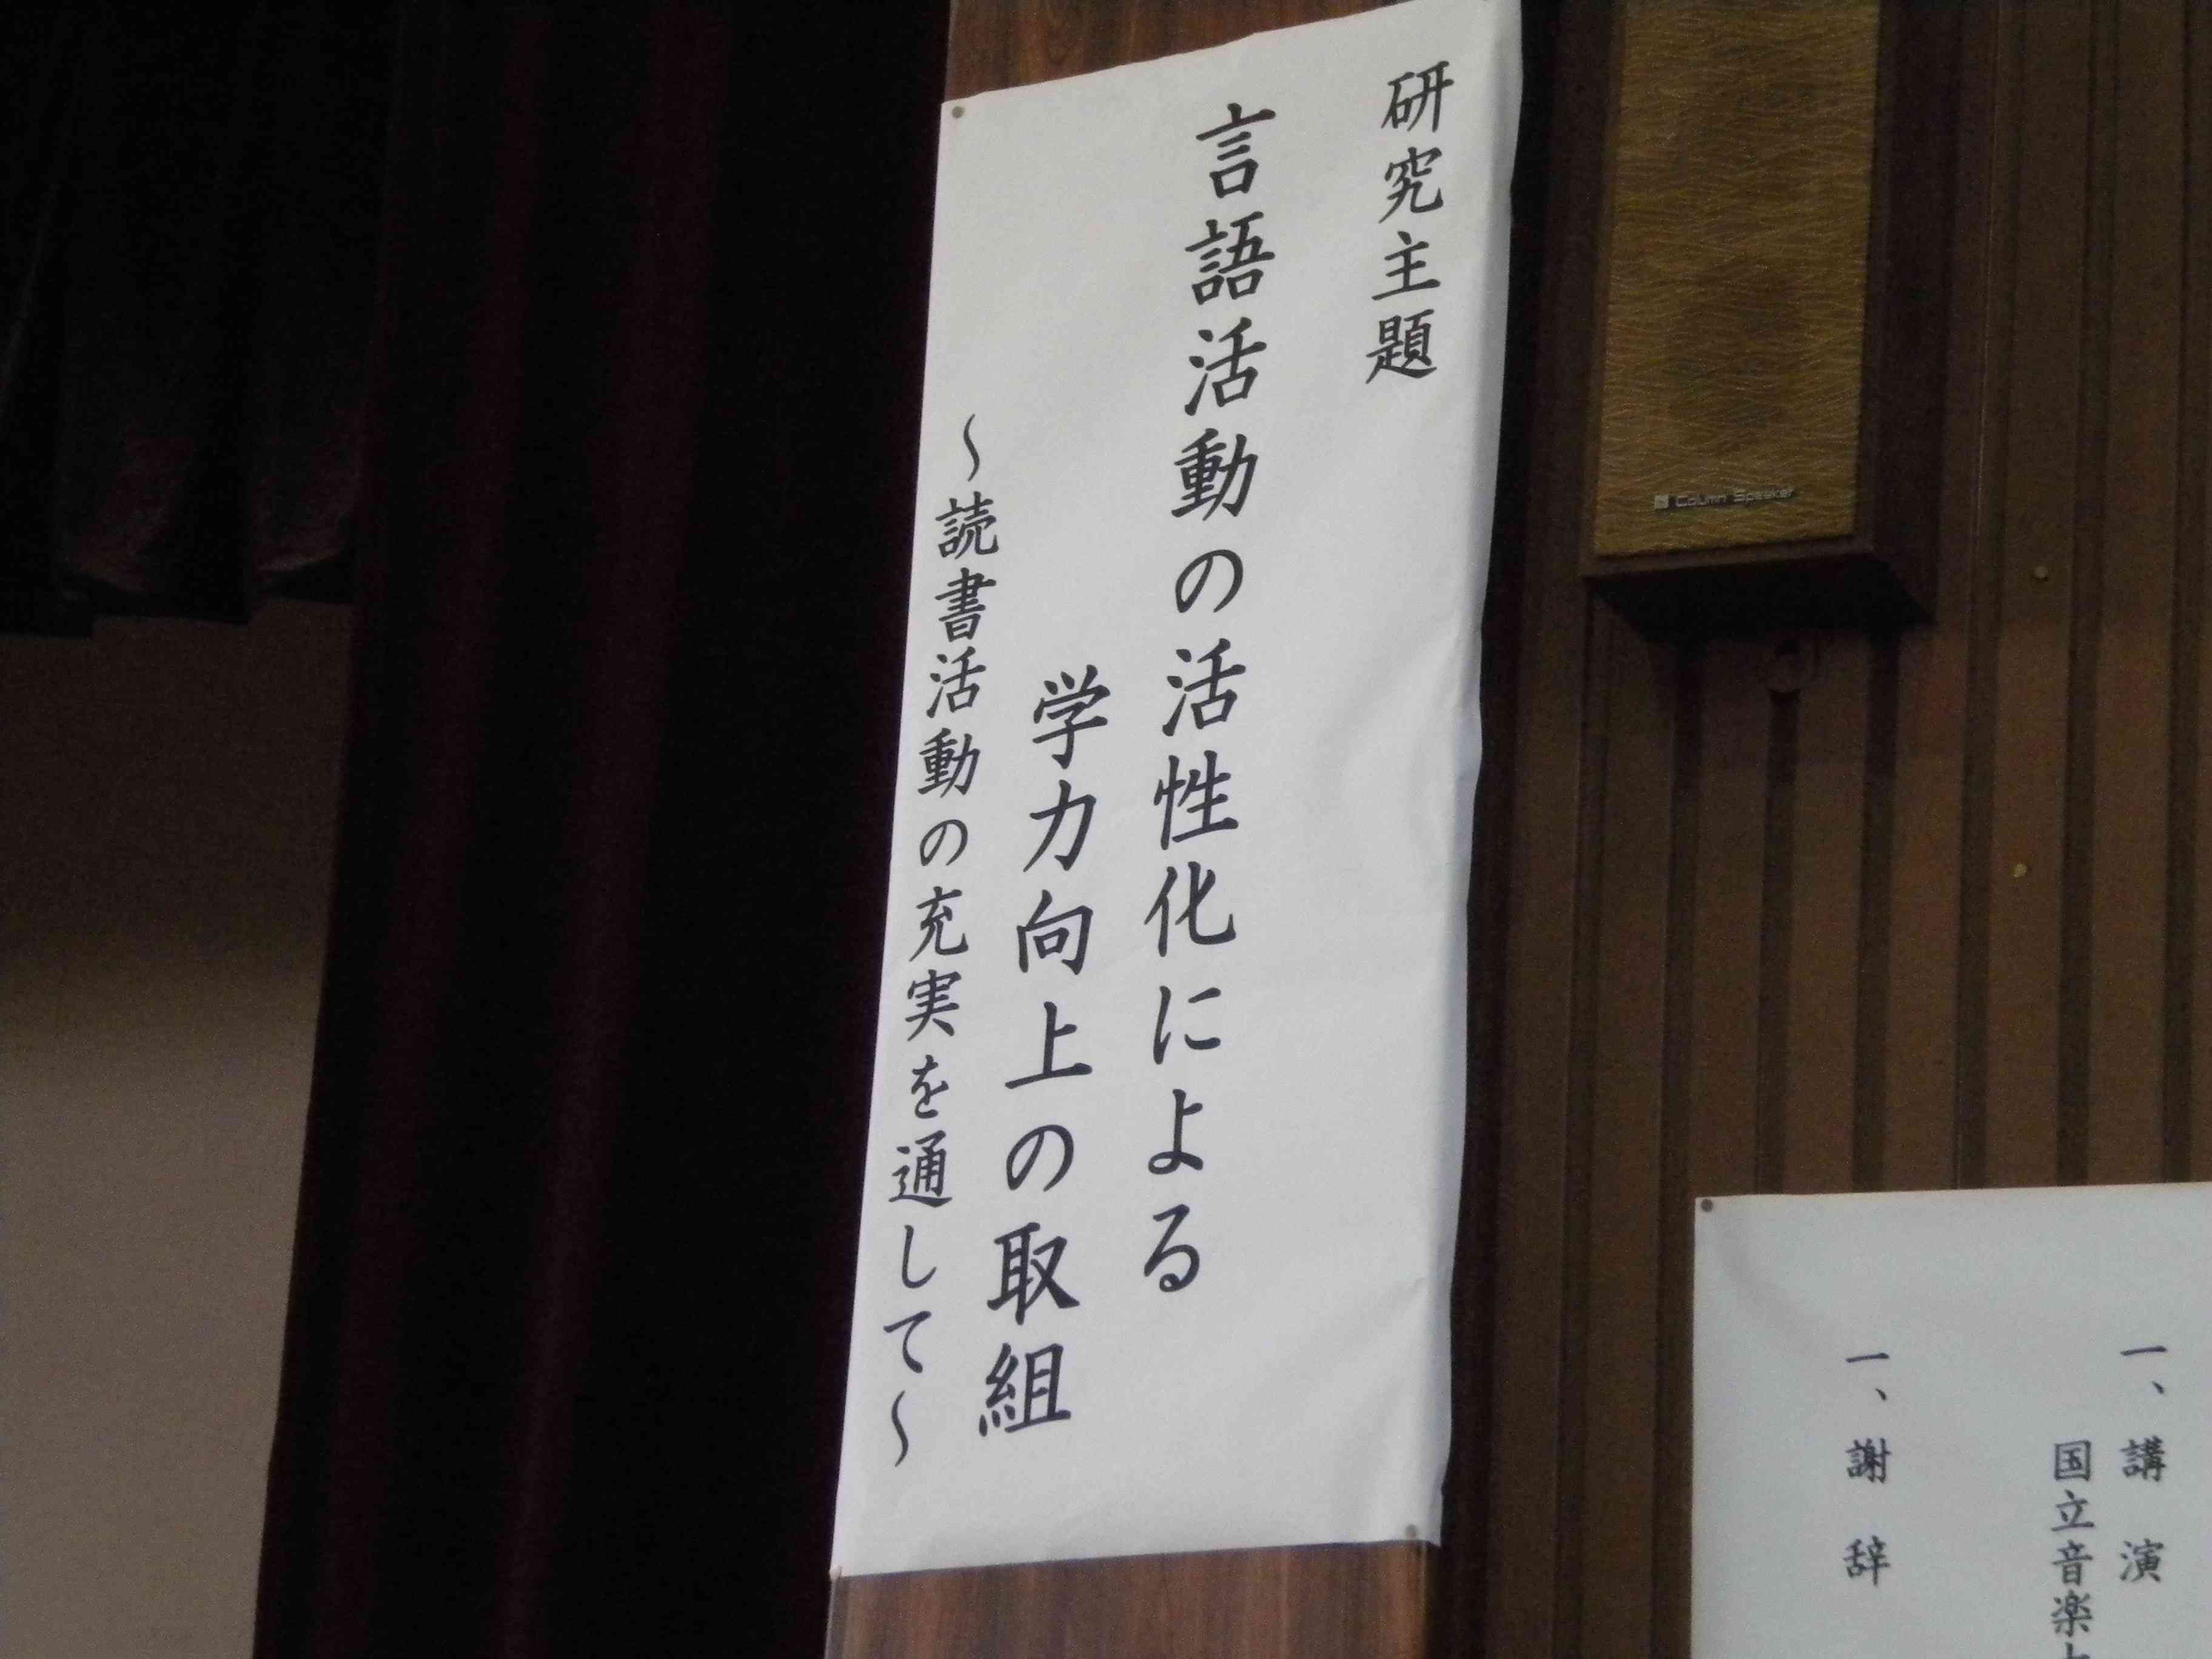 研究主題
言語活動の活性化による
学力向上の取組
〜読書活動の充実を通して〜
Column Speaker
一、講演
国立音楽
一、謝辞